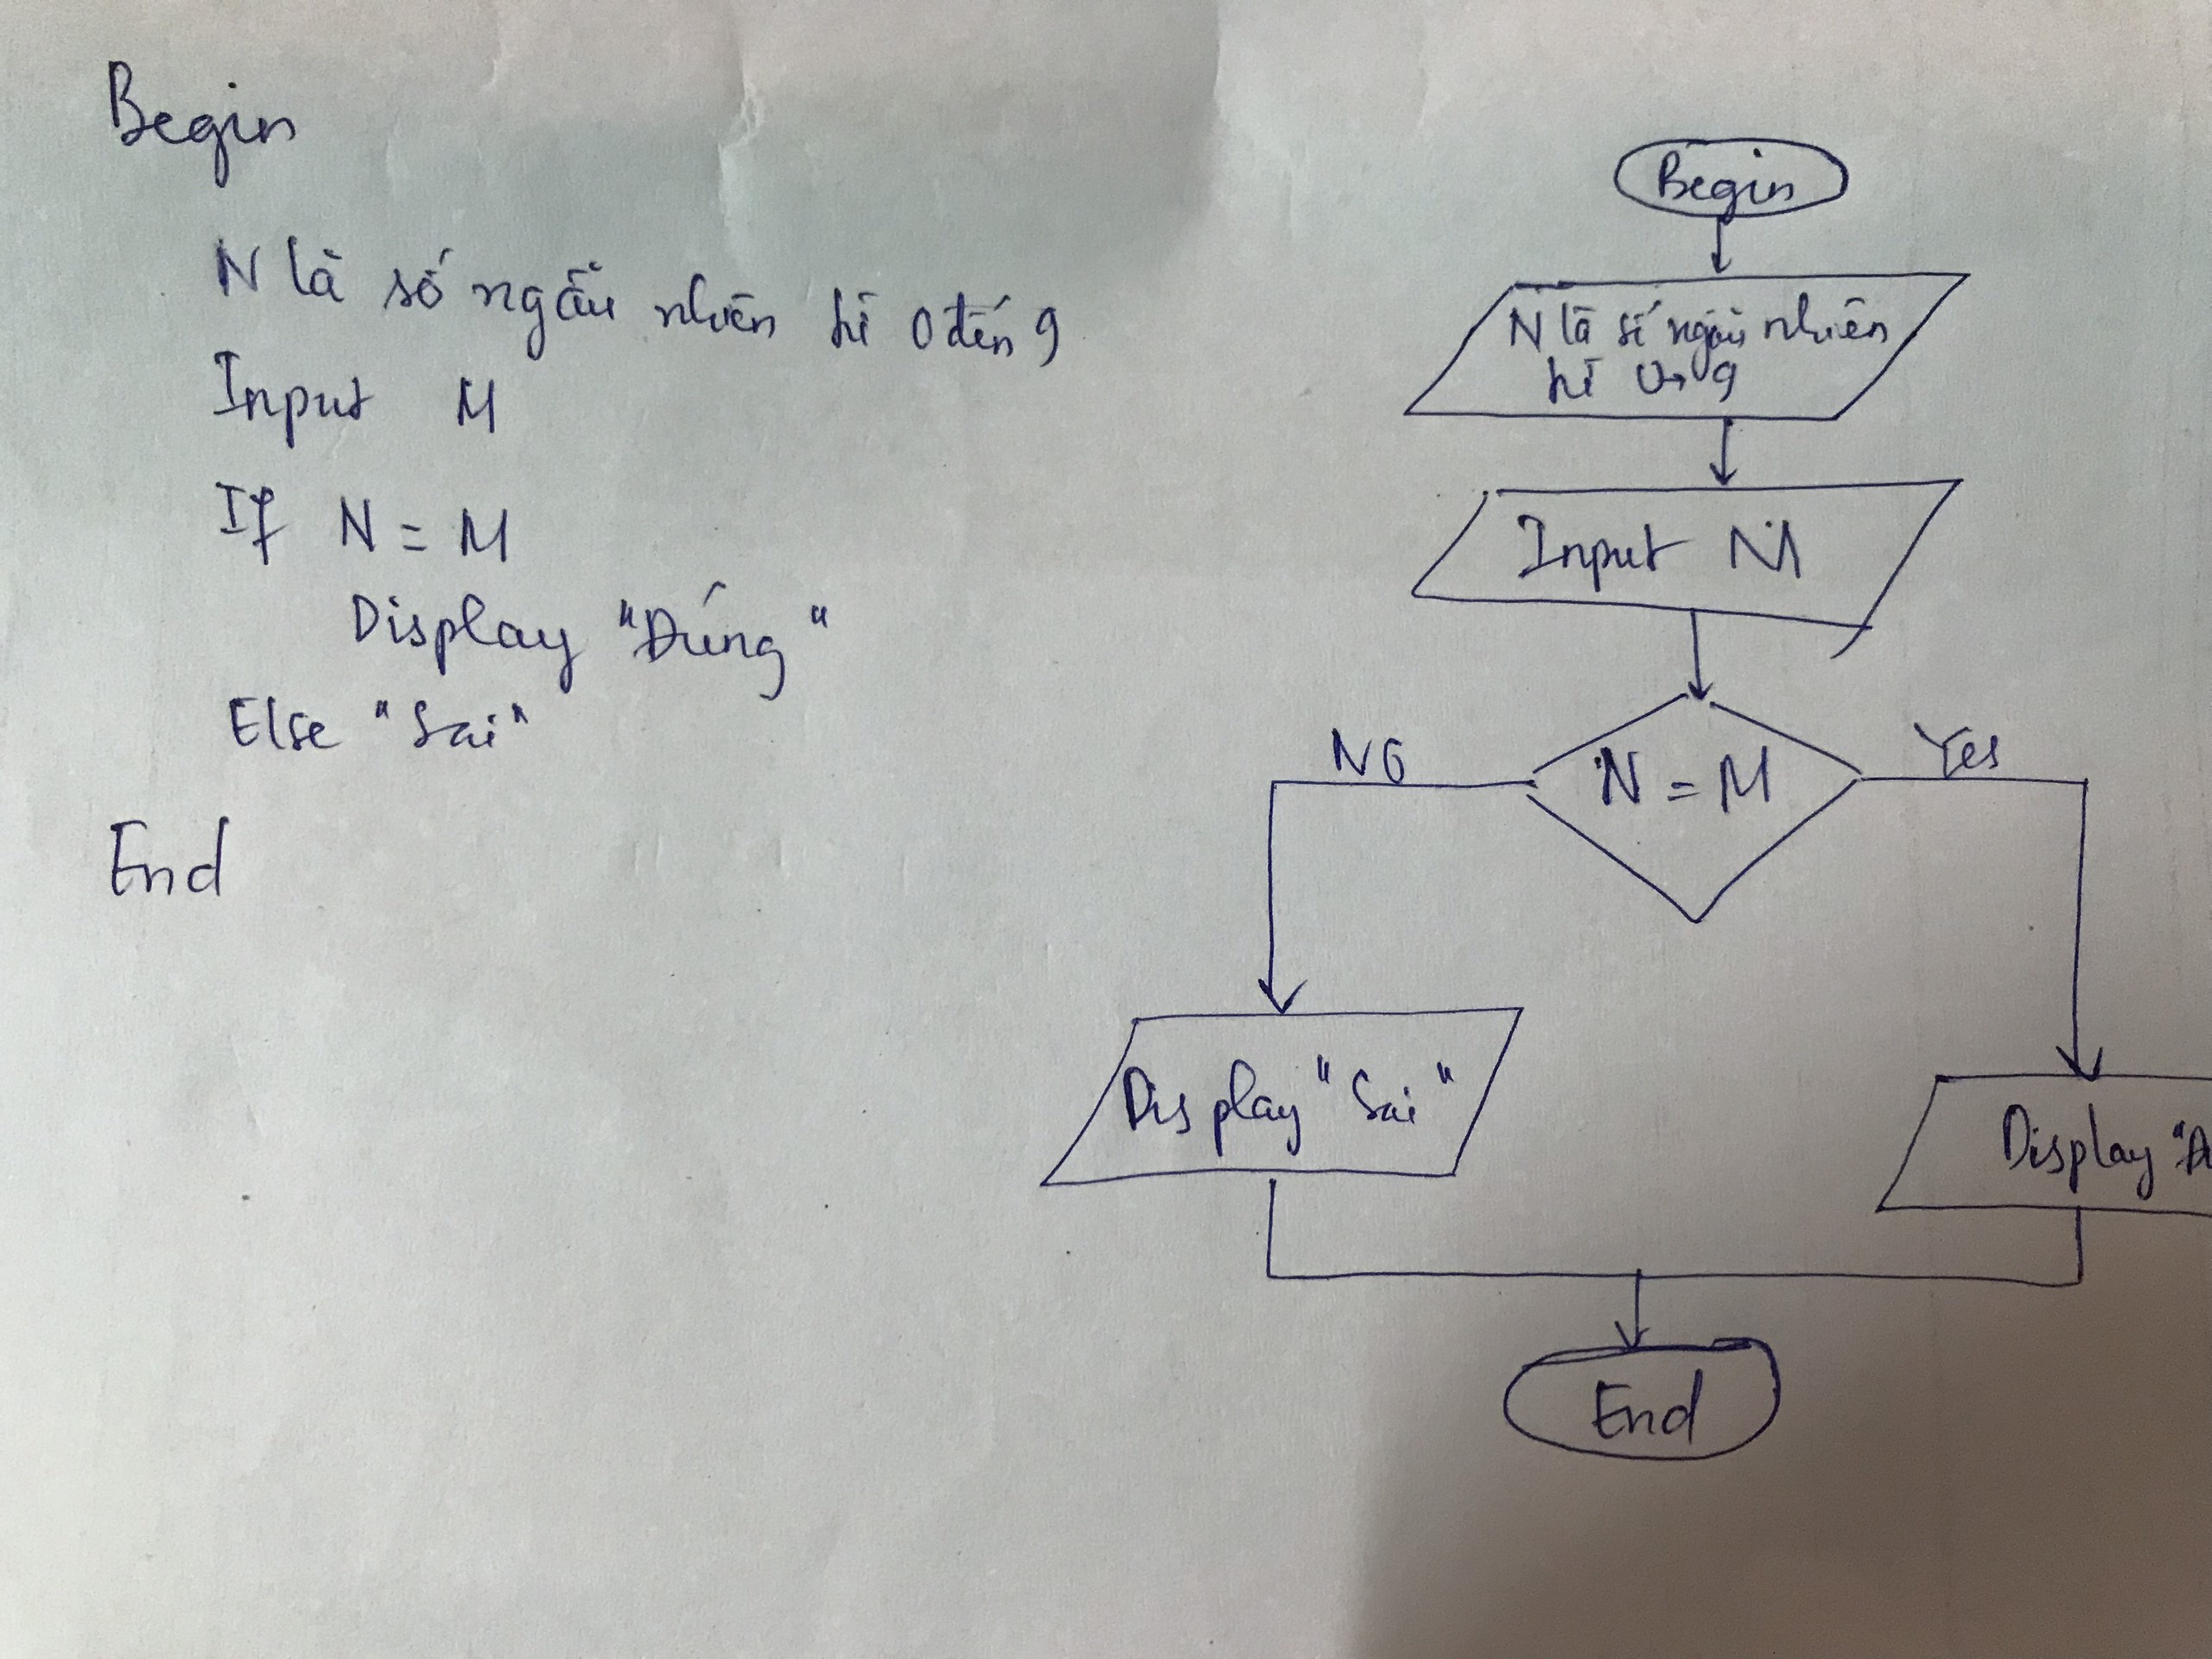 Begin
N là số ngẫu nhiên từ 0 đến 9
Input M
If N = M
Display "Đúng"
Else "Sai"
End
Begin
N là số ngẫu nhiên
từ 0→9
Input M
N = M
No
Yes
Display "Sai"
Display "Đ
End